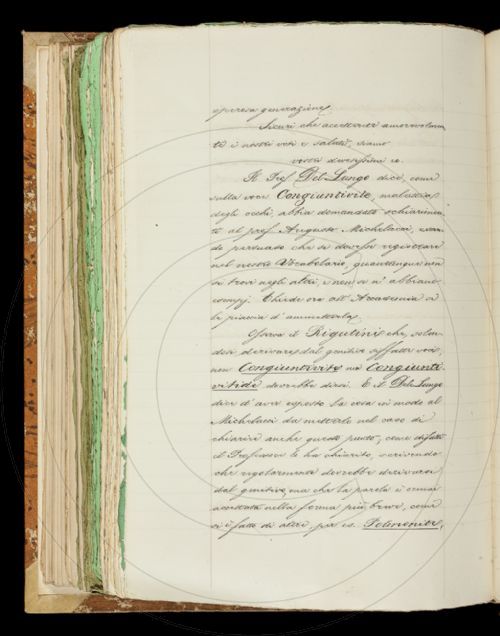 operosa generazione.
Sicuri che accetterete amorevolmen
te i nostri voti e saluti, siamo
vostri devotissimi ec.
Il Prof. Del-Lungo dice, come
sulla voce Congiuntivite, malattia
degli occhi, abbia domandato schiarimen
ti al prof. Augusto Michelacci, essen
do persuaso che si dovesse registrare
nel nostro Vocabolario, quantunque non
si trovi negli altri, e non se n'abbiano
esempj. Chiede ora all'Accademia se
le piaccia d'ammetterla.
Osserva il Rigutini che, volen
dosi derivare dal genitivo siffatte voci,
non Congiuntivite ma Congiunti
vitide dovrebbe dirsi. E il Del-Lungo
dice d'aver esposto la cosa in modo al
Michelacci da metterlo nel caso di
chiarire anche questo punto, come difatti
il Professore lo ha chiarito, scrivendo
che regolarmente dovrebbe derivarsi
dal genitivo, ma che la parola è ormai
accettata nella forma più breve, come
si è fatto di altri, per es.